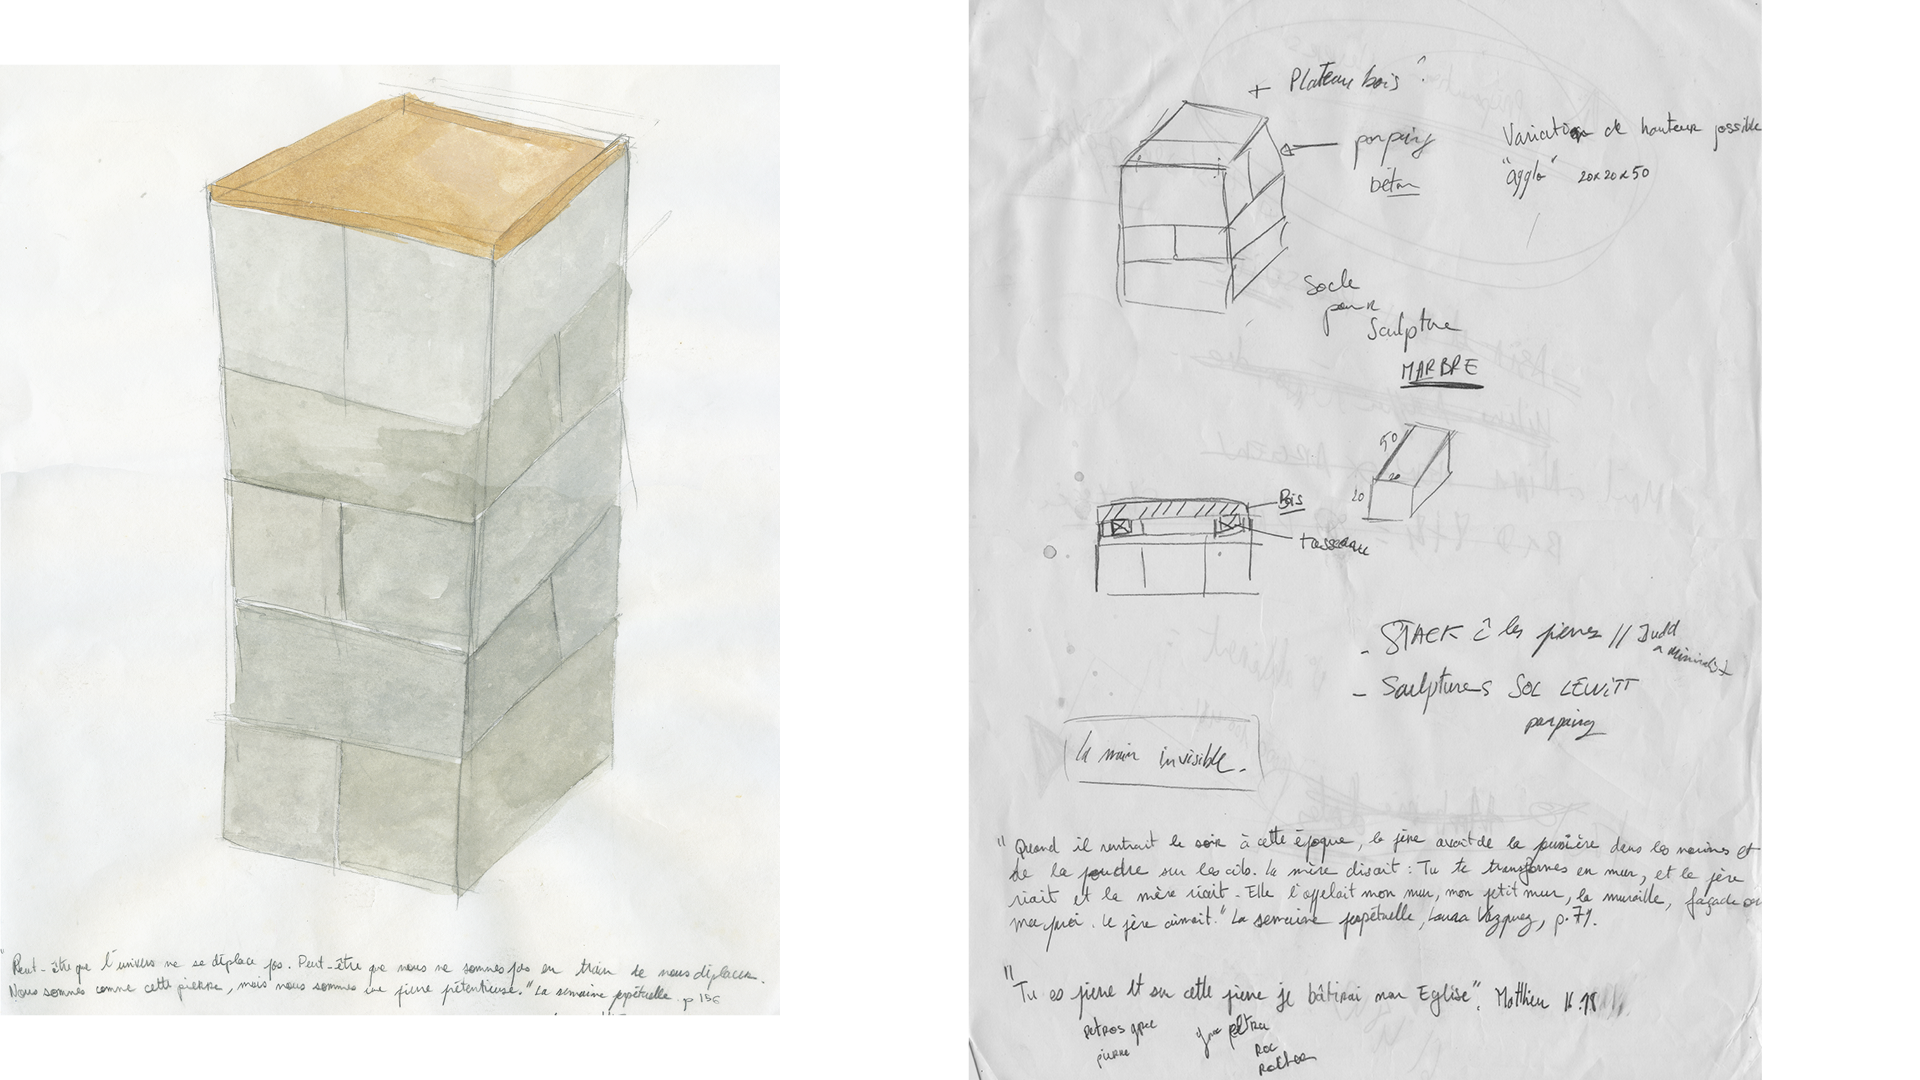 "Peut-être que l'univers ne se déplace pas. Peut-être que nous ne sommes pas en train de nous déplacer.
Nous sommes comme cette pierre, mais nous sommes une pierre prétentieuse." La semaine perpétuelle. p 156
+ Plateau bois ?
parpaing
béton
Variation de hauteur possible
"agglo" 20x20x50
Socle
pour
Sculpture
MARBRE
50
20
20
Bis
tasseau
- STACK les pierres // Judd
minimalist
- Sculptures SOL LEWITT
parpaing
la main invisible.
"Quand il rentrait le soir à cette époque, le père avait de la poussière dans les narines et
de la poudre sur les cils. La mère disait : Tu te transformes en mur, et le père
riait et la mère riait. Elle l'appelait mon mur, mon petit mur, la muraille, façade ou
le père aimait." La semaine perpétuelle, Laura Vazquez, p. 71.
"Tu es pierre et sur cette pierre je bâtirai mon Eglise". Matthieu 16.18
petros grec
pierre
petra
roc
rocher